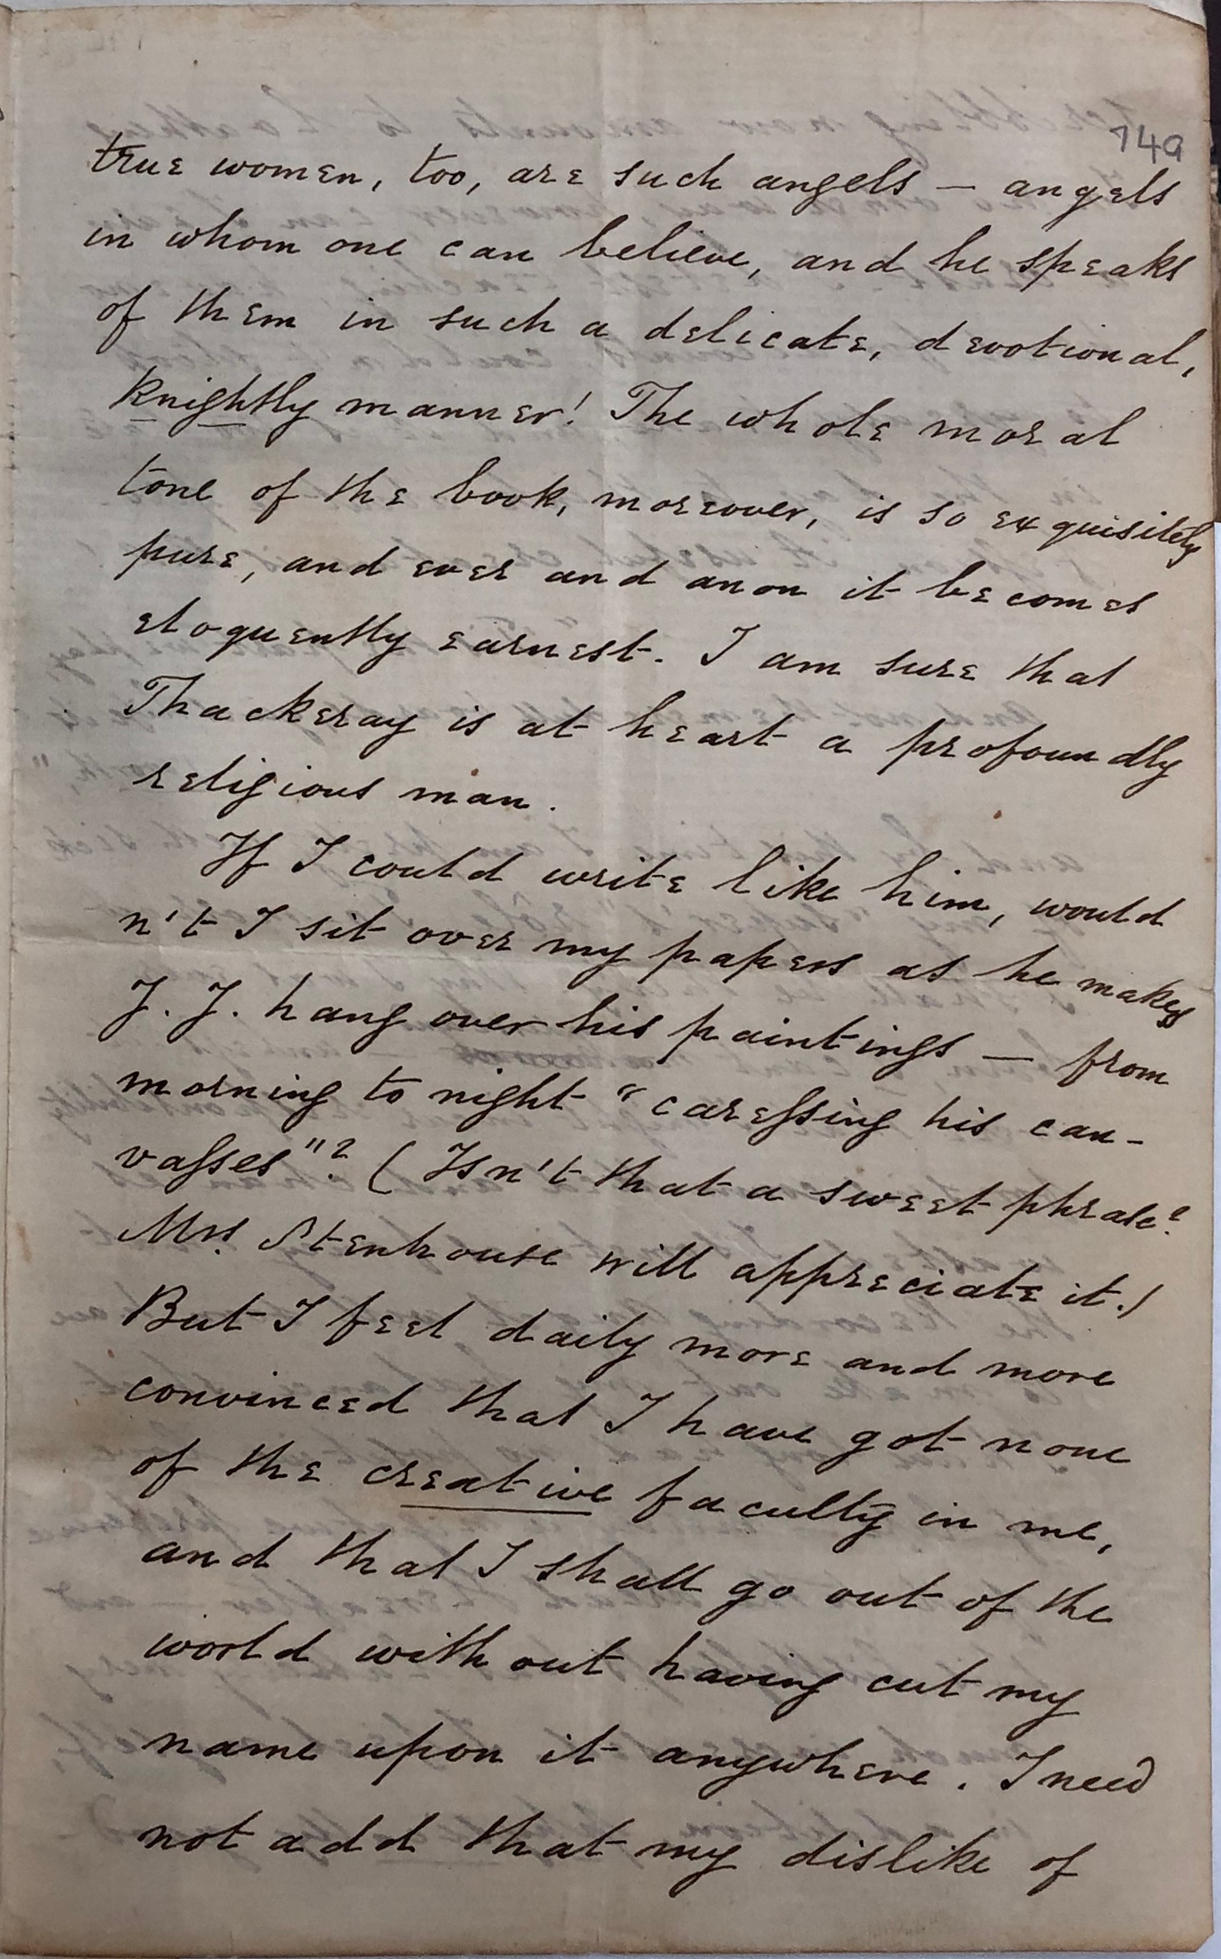 749
true women, too, are such angels — angels
in whom one can believe, and he speaks
of them in such a delicate, devotional,
knightly manner! The whole moral
tone of the book, moreover, is so exquisitely
pure, and ever and anon it becomes
eloquently earnest. I am sure that
Thackeray is at heart a profoundly
religious man.
If I could write like him, would
n't I sit over my papers as he makes
J. J. hang over his paintings — from
morning to night "caressing his can-
vasses"? (Isn't that a sweet phrase?
Mrs. Stenhouse will appreciate it.)
But I feel daily more and more
convinced that I have got none
of the creative faculty in me,
and that I shall go out of the
world without having cut my
name upon it anywhere. I need
not add that my dislike of